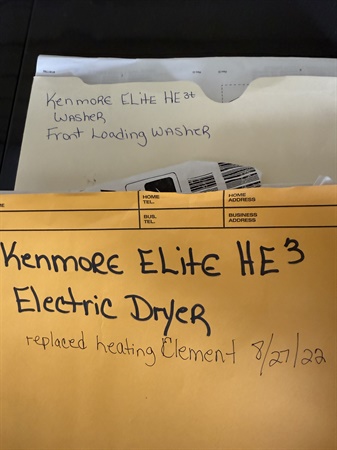 Kenmore Elite HE3t
Washer
Front Loading Washer
HOME TEL.
HOME ADDRESS
BUS. TEL.
BUSINESS ADDRESS
Kenmore Elite HE3
Electric Dryer
replaced heating Element 8/27/22